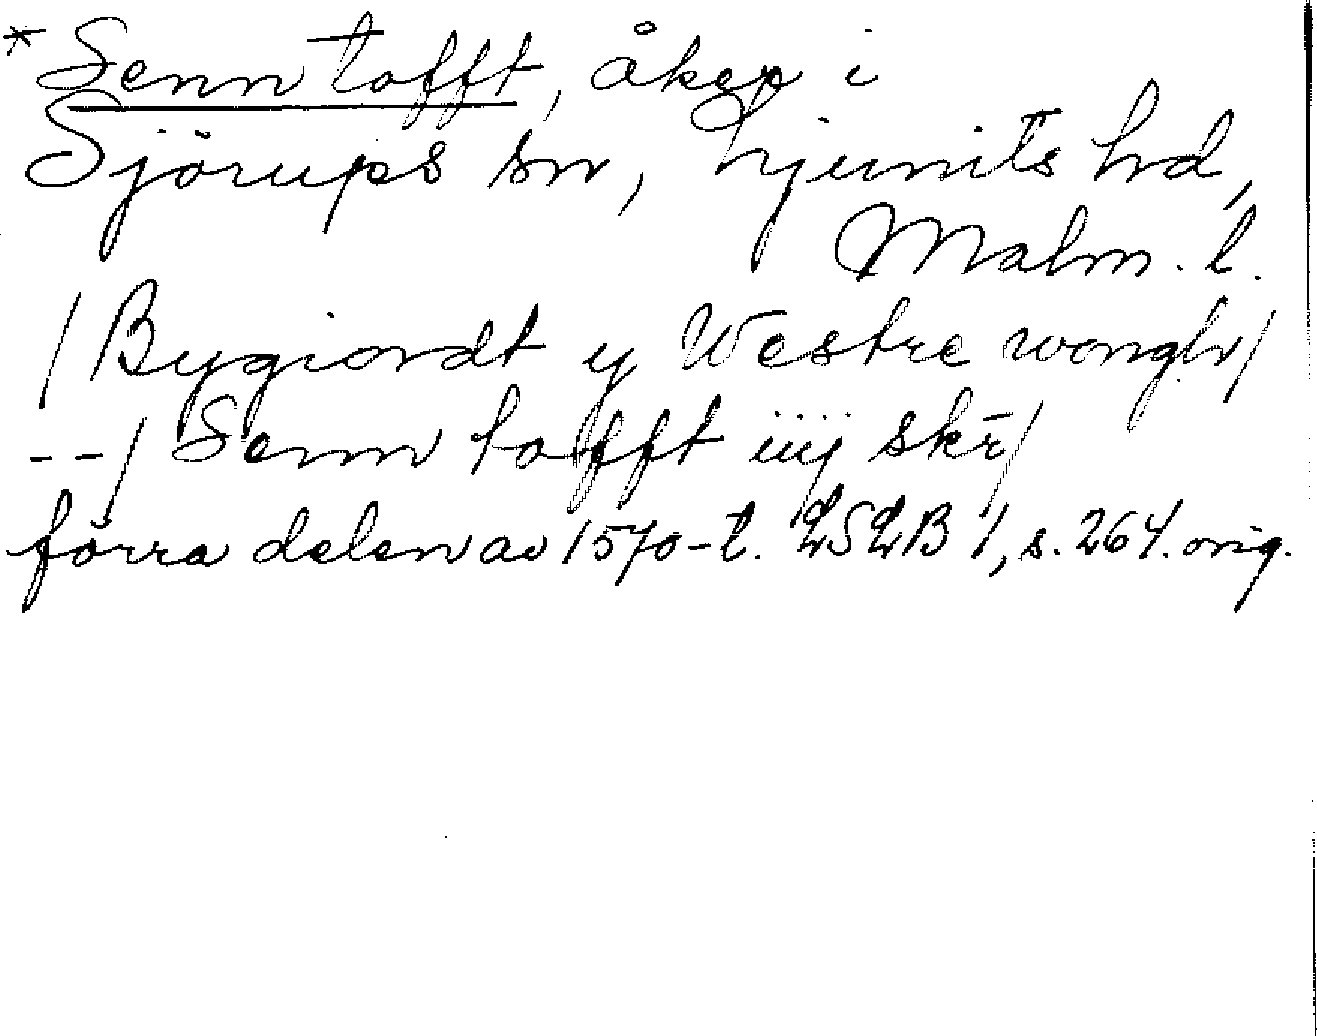 *Senn tofft, åker i
Sjörups sn, Ljunits hd,
Malm. l.
/Bygiordt y Westre wongh/
--/ Senn tofft iiij skr̄/
förra delen av 1570-t. LSLB 1, s. 264. orig.